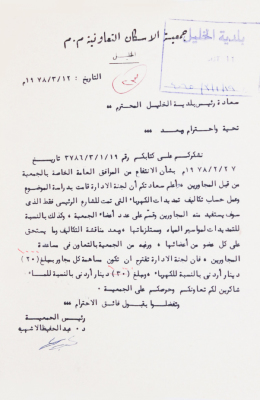 جمعية الاسكان التعاونية م.م
الخليل
بلدية الخليل
التاريخ : ١٩٧٨/٣/١٢م
سعادة رئيس بلدية الخليل المحترم
تحية واحترام وبعد
نشكركم على كتابكم رقم ٣٧٨٦/٣/١/١٩ تاريخ
١٩٧٨/٢/٢٧م بشأن الانتفاع من المرافق العامة الخاصة بالجمعية
من قبل المجاورين ، أعلم سعادتكم أن لجنة الادارة قامت بدراسة الموضوع
وعمل حساب تكاليف تمديدات الكهرباء التي تمت للشارع الرئيسي فقط الذي
سوف يستفيد منه المجاورين وقسم على عدد أعضاء الجمعية ، وكذلك بالنسبة
للتمديدات لمواسير المياه ومستلزماتها ، وبعد مناقشة التكاليف وما يستحق
على كل عضو من أعضائها ، ورغبه من الجمعية بالتعاون في مساعدة
المجاورين ، فان لجنة الادارة تقترح ان تكون مساهمة كل مجاور بمبلغ (٢٠)
دينار أردني بالنسبة للكهرباء ، ومبلغ (٣٠) دينار أردني بالنسبة للماء
شاكرين لكم تعاونكم وحرصكم على الجمعية .
وتفضلوا بقبول فائق الاحترام ،،،
رئيس الجمعية
د. عبدالحفيظ الاشهب